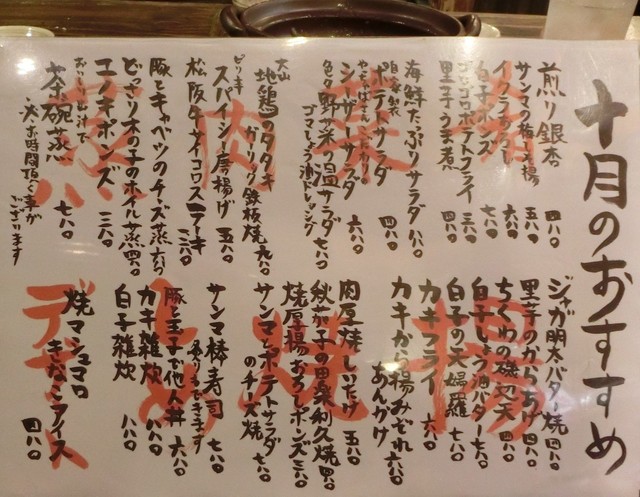 十月のおすすめ
煎り銀杏 四八〇
サンマの梅しそ揚 五八〇
イクラおろし 六八〇
白子ポンズ 七八〇
ゴロゴロポテトフライ 三八〇
里芋うま煮 四八〇
海鮮たっぷりサラダ 八八〇
自家製
ポテトサラダ 四八〇
シーザーサラダ 六八〇
色々野菜の温サラダ 七八〇
ゴマしょう油ドレッシング
大山
地鶏のタタキ
ガーリック鉄板焼 九八〇
ピリ辛
スパイシー唐揚げ 五八〇
松阪牛サイコロステーキ
豚とキャベツのチーズ蒸 六八〇
どっさり木の子のホイル蒸 四八〇
エノキポンズ 三八〇
おいしい出汁で
茶碗蒸 七八〇
※お時間頂く事が
ございます
ジャガ明太バター焼 四八〇
里芋のからあげ 四八〇
ちくわの磯辺天 四八〇
白子しょう油バター 七八〇
白子の天婦羅 七八〇
カキフライ 六八〇
カキから揚みぞれ
あんかけ 六八〇
肉豆焼しいたけ 五八〇
秋茄子の田楽利久焼 四八〇
焼厚揚おろしポンズ 三八〇
サンマとポテトサラダ
のチーズ焼 七八〇
サンマ棒寿司 七八〇
炙りもできます
豚と玉子で他人丼 六八〇
カキ雑炊 八八〇
白子雑炊 八八〇
焼マシュマロ
きなこアイス 四八〇
菜
肉
蒸
揚
焼
デザート